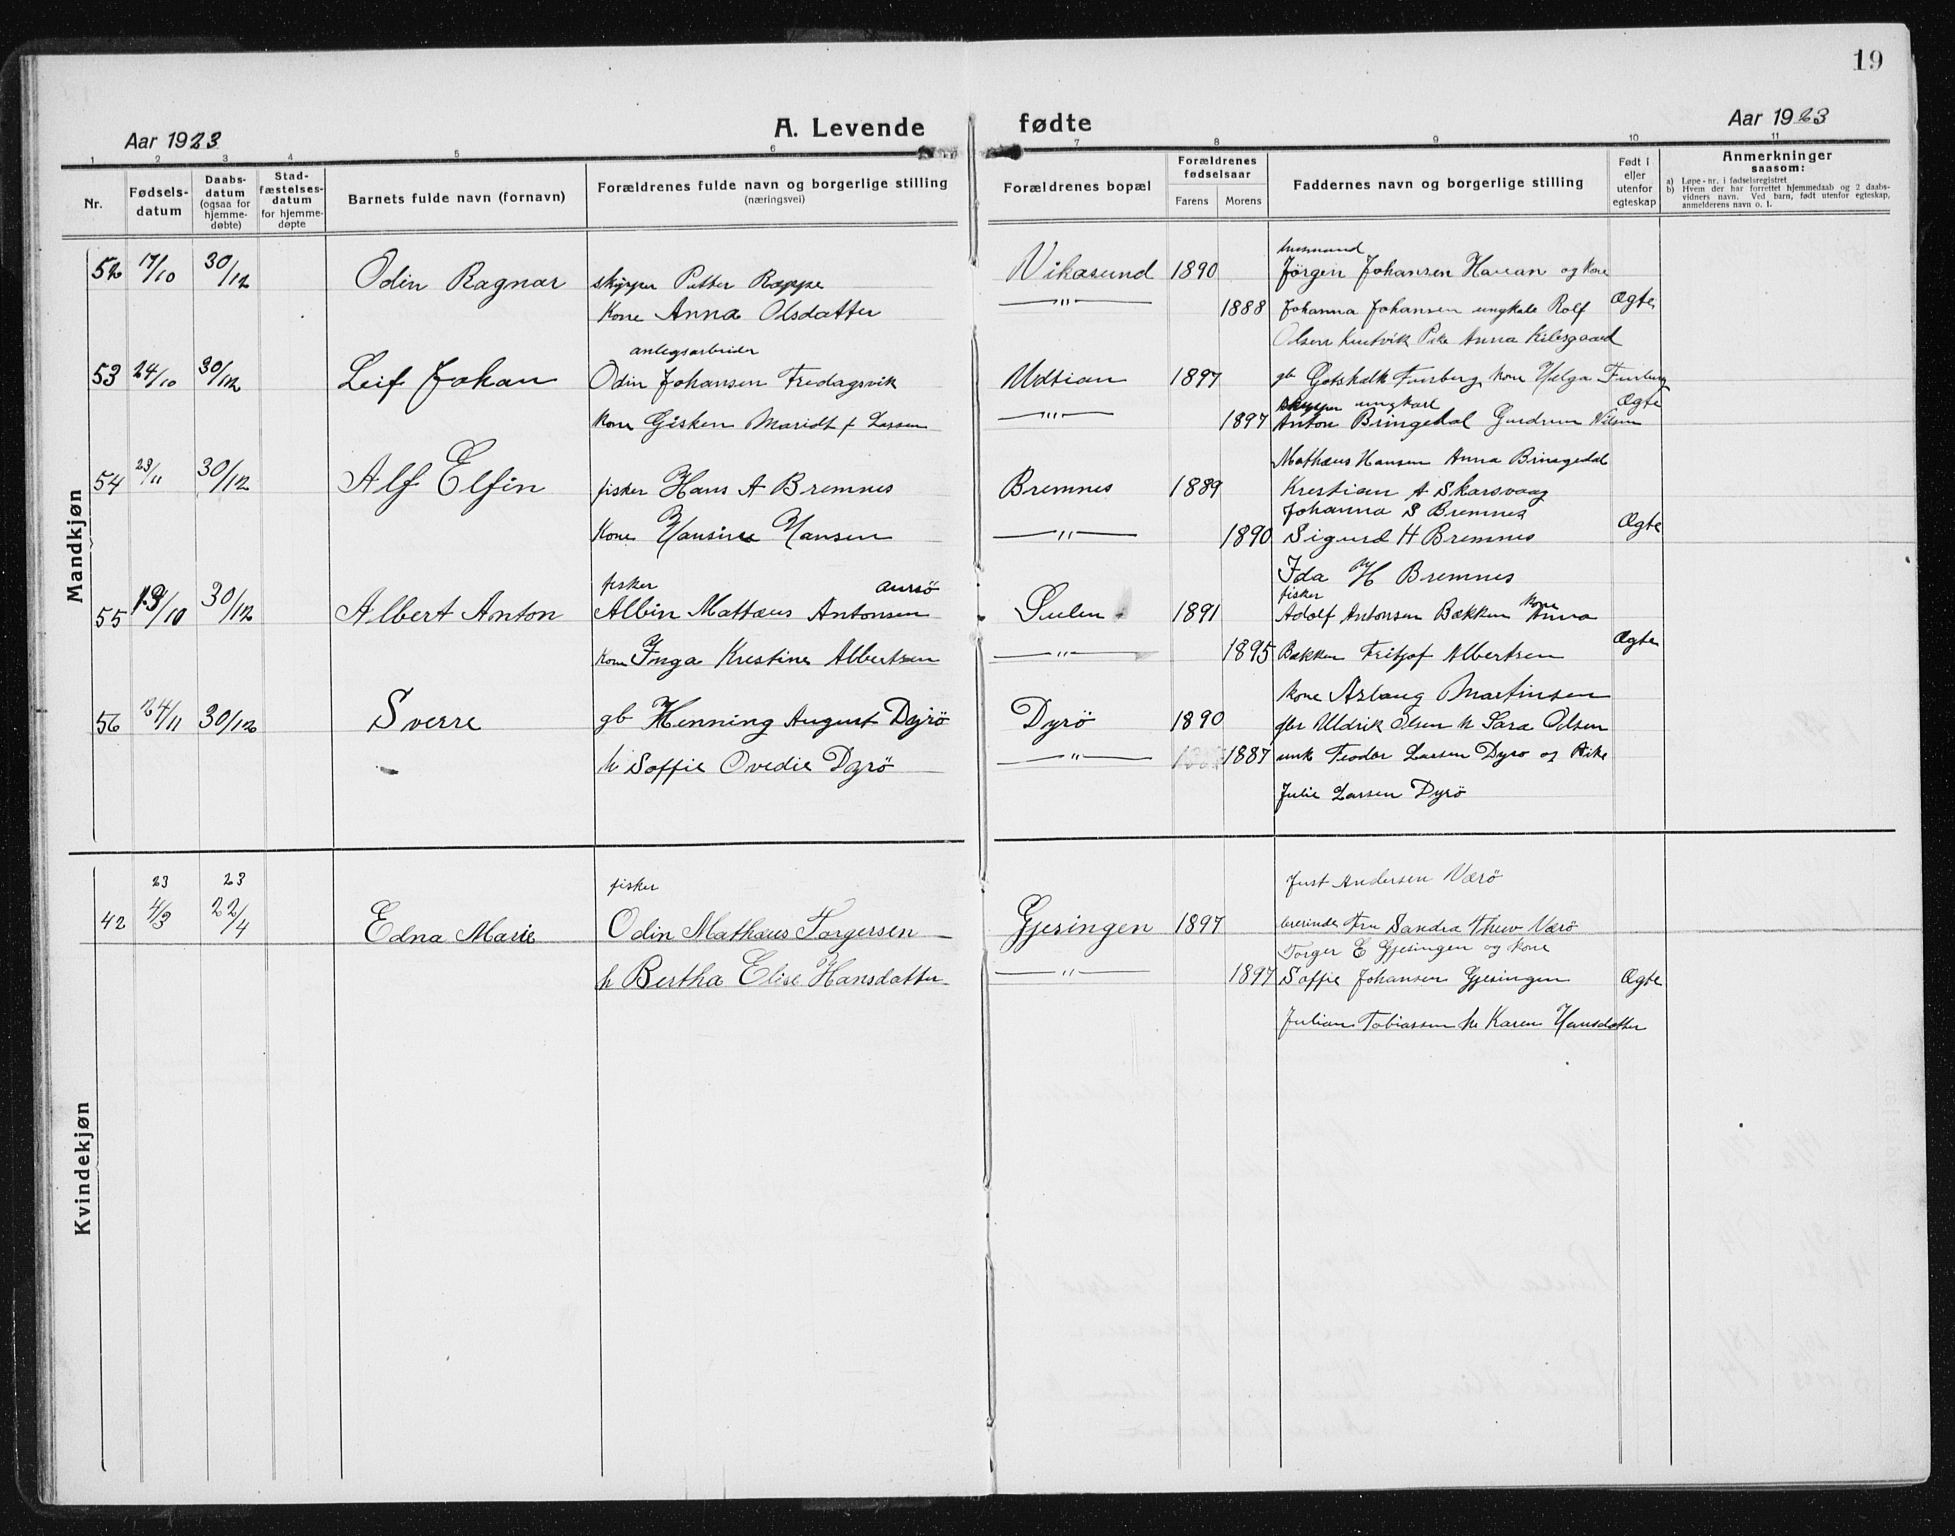 19
Aar 1923
A. Levende fødte
Aar 1923
1 2 3 4 5 6 7 8 9 10 11
Nr.
Fødsels-
datum
Daabs-
datum
(ogsaa for
hjemme-
døbte)
Stad-
fæstelses-
datum
for hjemme-
døpte
Barnets fulde navn (fornavn)
Forældrenes fulde navn og borgerlige stilling
(næringsvei)
Forældrenes bopæl
Forældrenes
fødselsaar
Farens Morens
Faddernes navn og borgerlige stilling
Født i
eljer
utenfor
egteskap
Anmerkninger
saasom:
a) Løpe-nr. i fødselsregistret
b) Hvem der har forrettet hjemmedaab og 2 daabs-
vidners navn. Ved barn, født utenfor egteskap,
anmelderens navn o. l.
Mandkjøn
52 17/10 30/12 Odin Ragnar skipper Petter Roppe Vikasund 1890 Jørgen Johansen Havan og kone
Kone Anna Olsdatter —"— 1888 Johanna Johansen ungkale Rolf Ægte
Olsen Kurtvik Pike Anna Kilesgaard
anlegsarbeider
53 24/10 30/12 Leif Johan Odin Johansen Fredagsvik Udtian 1897 gb Gotskalk Furberg kone Helga Furberg
ungkarl
Kone Gisken Maridt f Larsen —"— 1897 Anton Bringedal Gudrun Nilsen Ægte
Mathæus Hansen Anna Bringedal
54 23/11 30/12 Alf Elfin fisker Hans A Bremnes Bremnes 1889 Krestian A Skarsvaag
Johanna S Bremnes
Kone Hansine Hansen —"— 1890 Sigurd H Bremnes Ægte
Ida H Bremnes
fisker aursö fisker kone
55 19/10 30/12 Albert Anton Albin Mattæus Antonsen Sulen 1891 Adolf Antonsen Bækken Anna
kone Inga Krestine Albertsen —"— 1895 Bækken Fritjof Albertsen Ægte
kone Aslaug Martinsen
56 24/11 30/12 Sverre gb Henning August Dyrö Dyrö 1890 gbr Uldrik Olsen h Sara Olsen
h Soffie Ovedie Dyrö —"— 1887 unk Teodor Larsen Dyro og Pike
Julie Larsen Dyrö
Kvindekjøn
23 23 fisker Just Andersen Værö
42 4/3 22/4 Edna Marie Odin Mathæus Torgersen Gjesingen 1897 lererinde Fru Sandra Værö
Torger E Gjesingen og kone
h Bertha Elise Hansdatter —"— 1897 Soffie Johansen Gjesingen Ægte
Julian Tobiassen h Karen Hansdatter